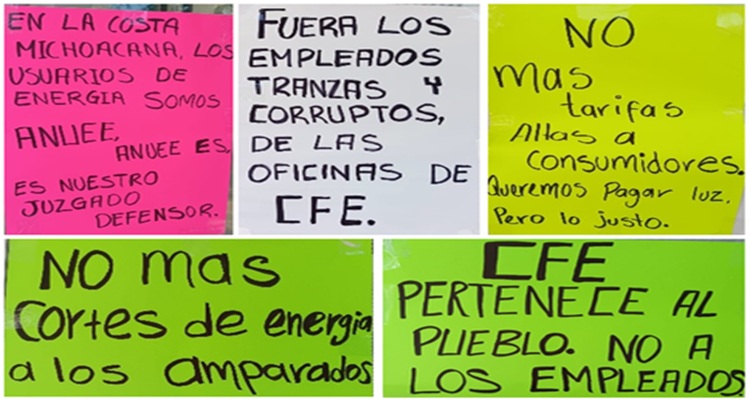 EN LA COSTA
MICHOACANA, LOS
USUARIOS DE
ENERGIA SOMOS
ANUEE,
ANUEE ES,
ES NUESTRO
JUZGADO
DEFENSOR.
FUERA LOS
EMPLEADOS
TRANZAS Y
CORRUPTOS,
DE LAS
OFICINAS DE
CFE.
NO
mas
tarifas
Altas a
Consumidores.
Queremos Pagar luz.
Pero lo justo.
NO mas
Cortes de energia
a los amparados
CFE
PERTENECE AL
PUEBLO. NO A
LOS EMPLEADOS